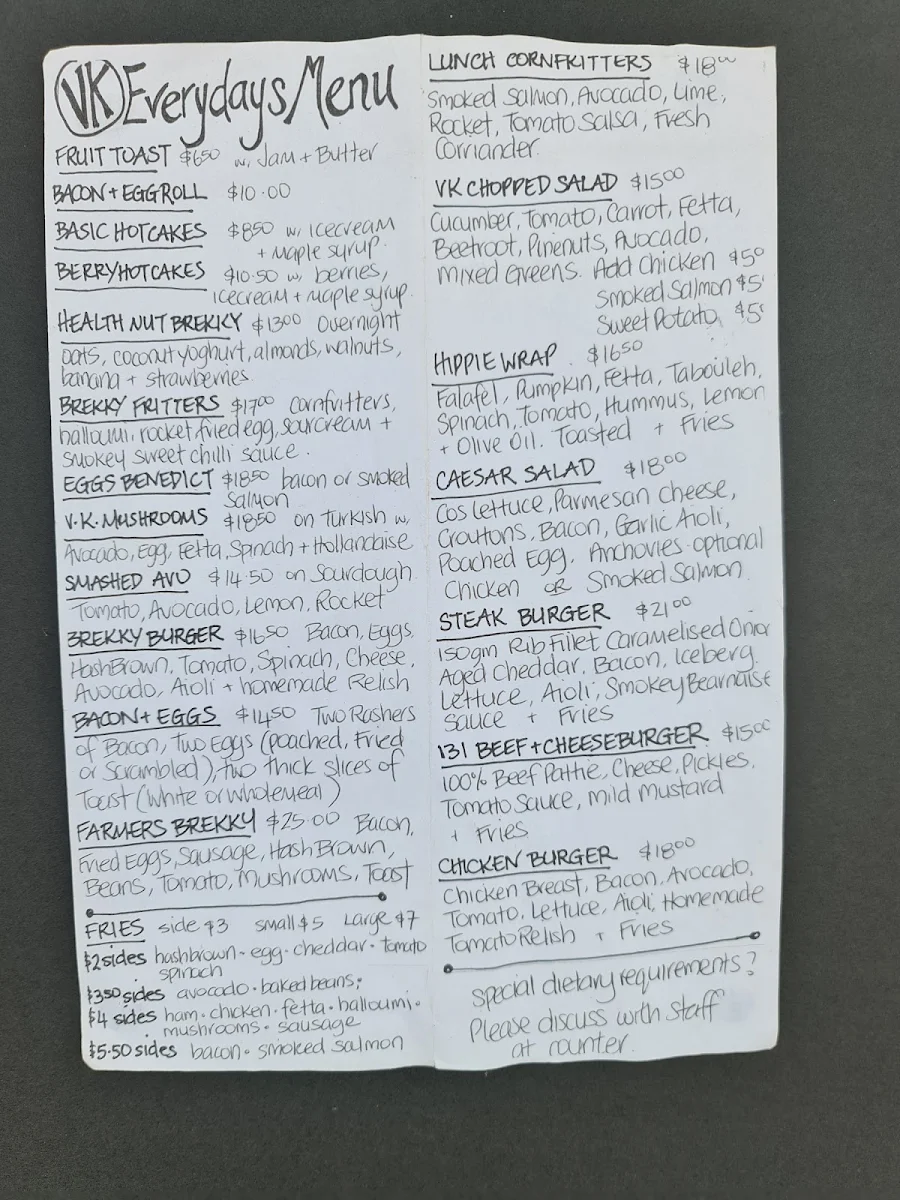 VK Everydays Menu
FRUIT TOAST $6.50 w, Jam + Butter
BACON + EGG ROLL $10.00
BASIC HOTCAKES $8.50 w, icecream
+ Maple syrup.
BERRY HOTCAKES $10.50 w, berries,
icecream + Maple syrup.
HEALTH NUT BREKKY $13.00 Overnight
oats, coconut yoghurt, almonds, walnuts,
banana + strawberries.
BREKKY FRITTERS $17.00 Cornfritters,
halloumi, rocket, fried egg, sourcream +
smokey sweet chilli sauce.
EGGS BENEDICT $18.50 bacon or smoked
Salmon
V.K. MUSHROOMS $18.50 on Turkish w,
Avocado, Egg, Fetta, Spinach + Hollandaise
SMASHED AVO $14.50 on Sourdough
Tomato, Avocado, Lemon, Rocket
BREKKY BURGER $16.50 Bacon, Eggs,
HashBrown, Tomato, Spinach, Cheese,
Avocado, Aioli + homemade Relish
BACON + EGGS $14.50 Two Rashers
of Bacon, Two Eggs (Poached, Fried
or Scrambled), two thick slices of
Toast (White or wholemeal)
FARMERS BREKKY $25.00 Bacon,
Fried Eggs, Sausage, Hash Brown,
Beans, Tomato, Mushrooms, Toast
FRIES side $3 small $5 Large $7
$2 sides hashbrown · egg · cheddar · tomato
spinach
$3.50 sides avocado · baked beans ·
$4 sides ham · chicken · fetta · halloumi ·
mushrooms · sausage
$5.50 sides bacon · smoked salmon
LUNCH CORNFRITTERS $18.00
Smoked Salmon, Avocado, Lime,
Rocket, Tomato Salsa, Fresh
Corriander.
VK CHOPPED SALAD $15.00
Cucumber, Tomato, Carrot, Fetta,
Beetroot, Pinenuts, Avocado,
mixed Greens. Add Chicken $5.0
Smoked Salmon $5
Sweet Potato $5
HIPPIE WRAP $16.50
Falafel, Pumpkin, Fetta, Tabouleh,
Spinach, Tomato, Hummus, Lemon
+ Olive Oil. Toasted + Fries
CAESAR SALAD $18.00
Cos Lettuce, Parmesan Cheese,
Croutons, Bacon, Garlic Aioli,
Poached Egg. Anchovies · optional
Chicken OR Smoked Salmon
STEAK BURGER $21.00
150gm Rib Fillet Caramelised Onion
Aged Cheddar, Bacon, Iceberg
Lettuce, Aioli, Smokey Bearnaise
Sauce + Fries
131 BEEF + CHEESEBURGER $15.00
100% Beef Pattie, Cheese, Pickles,
Tomato Sauce, Mild Mustard
+ Fries
CHICKEN BURGER $18.00
Chicken Breast, Bacon, Avocado,
Tomato, Lettuce, Aioli, Homemade
Tomato Relish + Fries
Special dietary requirements?
Please discuss with Staff
at counter.